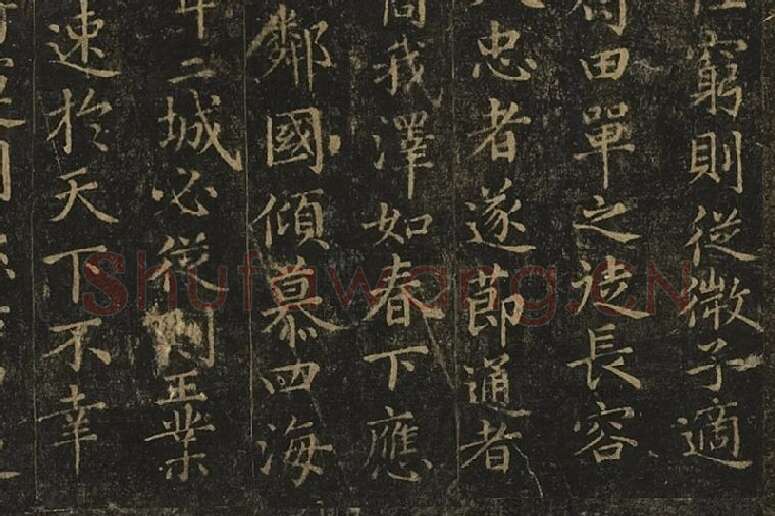 窮則從微子適
田單之徒長容
忠者遂節通者
我澤如春下應
鄰國傾慕四海
二城必從則王業
速於天下不幸
Shufawang.CN